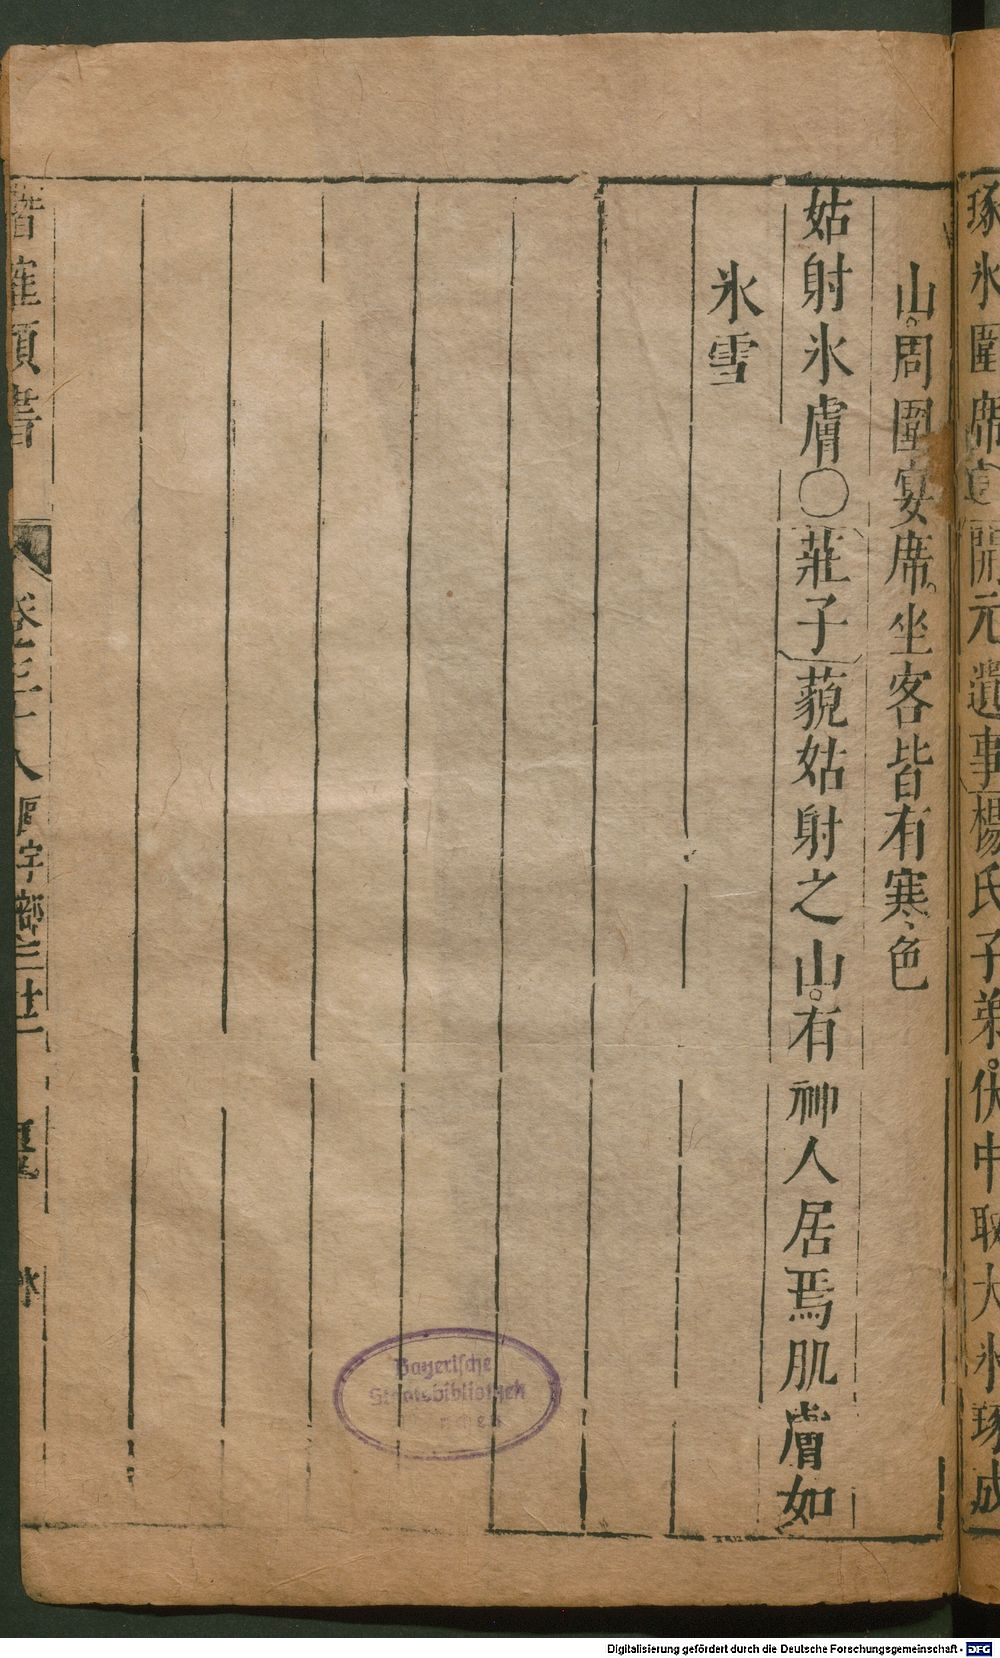 琢氷圍席宴開元遺事楊氏子弟。伏中取大氷琢成
山。周圍宴席。坐客皆有寒色
姑射氷膚〇莊子藐姑射之山。有神人居焉肌膚如
氷雪
潛確類書 卷二十八 區宇部二十三 氷
Bayerische
Staatsbibliothek
München
Digitalisierung gefördert durch die Deutsche Forschungsgemeinschaft - DFG